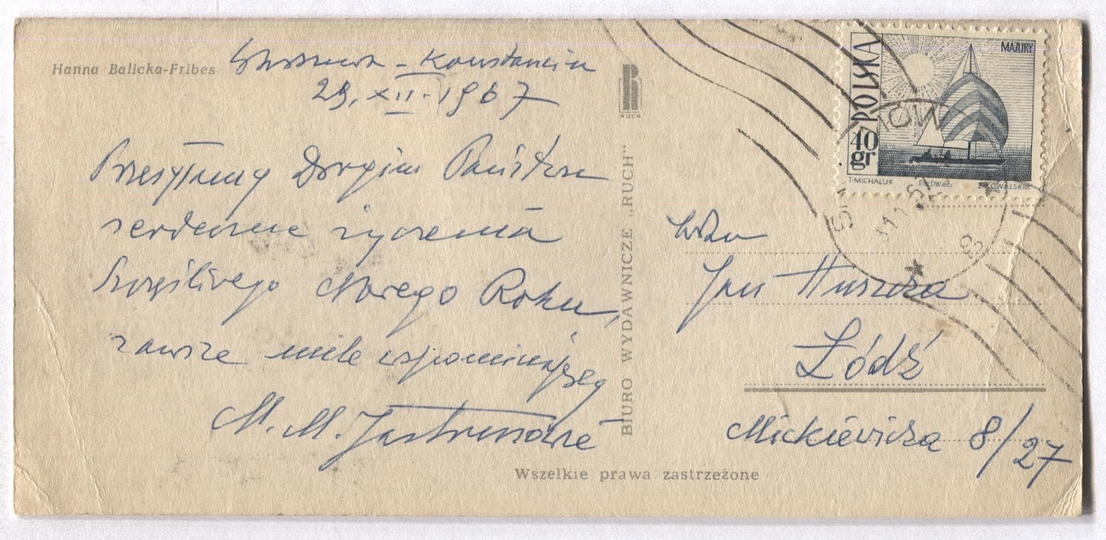 Hanna Balicka-Fribes
Warszawa - Konstancin
29. XII. 1967
Przesyłamy Drogim Państwu
serdeczne życzenia
Szczęśliwego Nowego Roku,
zawsze mile wspominający
M. M. Jastrunowie
RUCH
BIURO WYDAWNICZE „RUCH"
Wszelkie prawa zastrzeżone
POLSKA
MAZURY
40
gr
T·MICHALUK
Jan Huszcza
Łódź
Mickiewicza 8/27